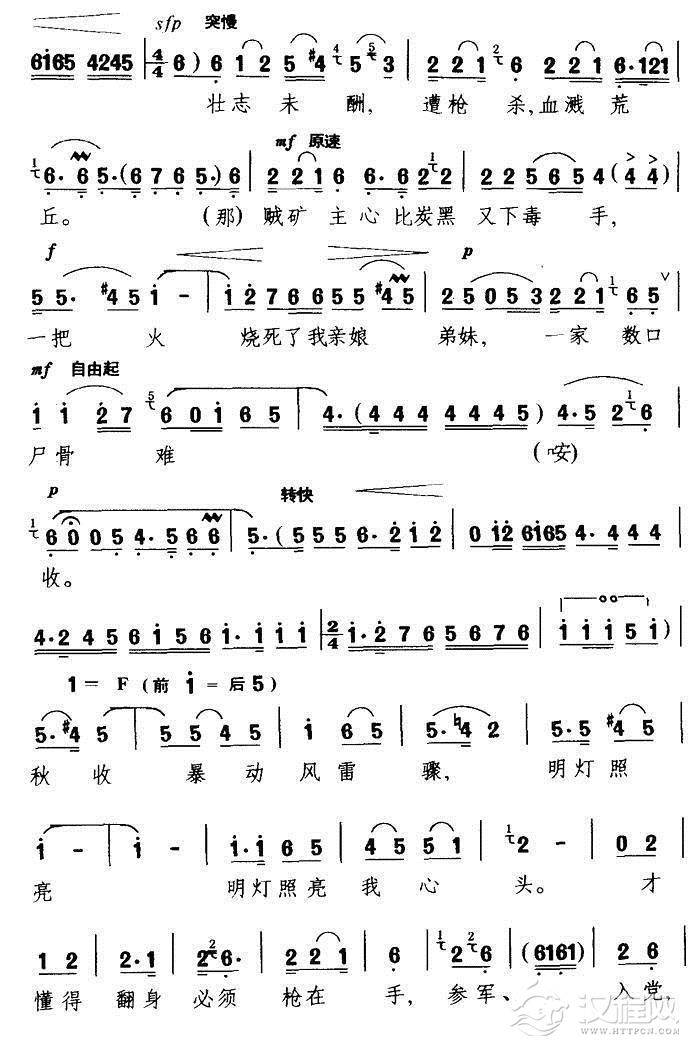 sfp 突慢
6165 4245 | 4/4 6) 6 1 2 5 #4 5 3 | 2 2 1 6 2 2 1 6·121
壮志未酬,遭枪杀,血溅荒
mf 原速
6·6 5·(6 7 6 5·) 6 | 2 2 1 6 6·6 2 2 | 2 2 5 6 5 4 (4 4)
丘。(那)贼矿主心比炭黑又下毒手,
f p
5 5· #4 5 i - | i 2 7 6 6 5 5 #4 5 | 2 5 0 5 3 2 2 1 6 5
一把火烧死了我亲娘弟妹,一家数口
mf 自由起
i i 2 7 6 0 i 6 5 | 4·(4 4 4 4 4 4 5) 4·5 2 6
尸骨难(咹)
p 转快
6 0 0 5 4·5 6 6 | 5·(5 5 5 6·2 i 2 | 0 i2 6i65 4·4 4 4
收。
4·2 4 5 6 i 5 6 i·i i i | 2/4 i·2 7 6 5 6 7 6 | i i i 5 i)
1= F (前 i = 后 5)
5·#4 5 | 5 5 4 5 | i 6 5 | 5·♮4 2 | 5·5 #4 5
秋收暴动风雷骤,明灯照
i - | i - | i·i 6 5 | 4 5 5 1 | 2 - | 0 2
亮明灯照亮我心头。才
1 2 | 2·1 | 2 6· | 2 2 1 | 6 | 2 6 | (6161) | 2 6
懂得翻身必须枪在手,参军、入党,
汉程网
HTTPCN.COM